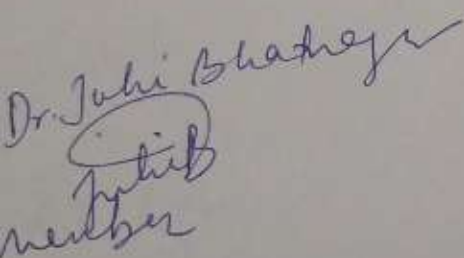 Dr. Juhi Bhatnagar
JuhiB
Member